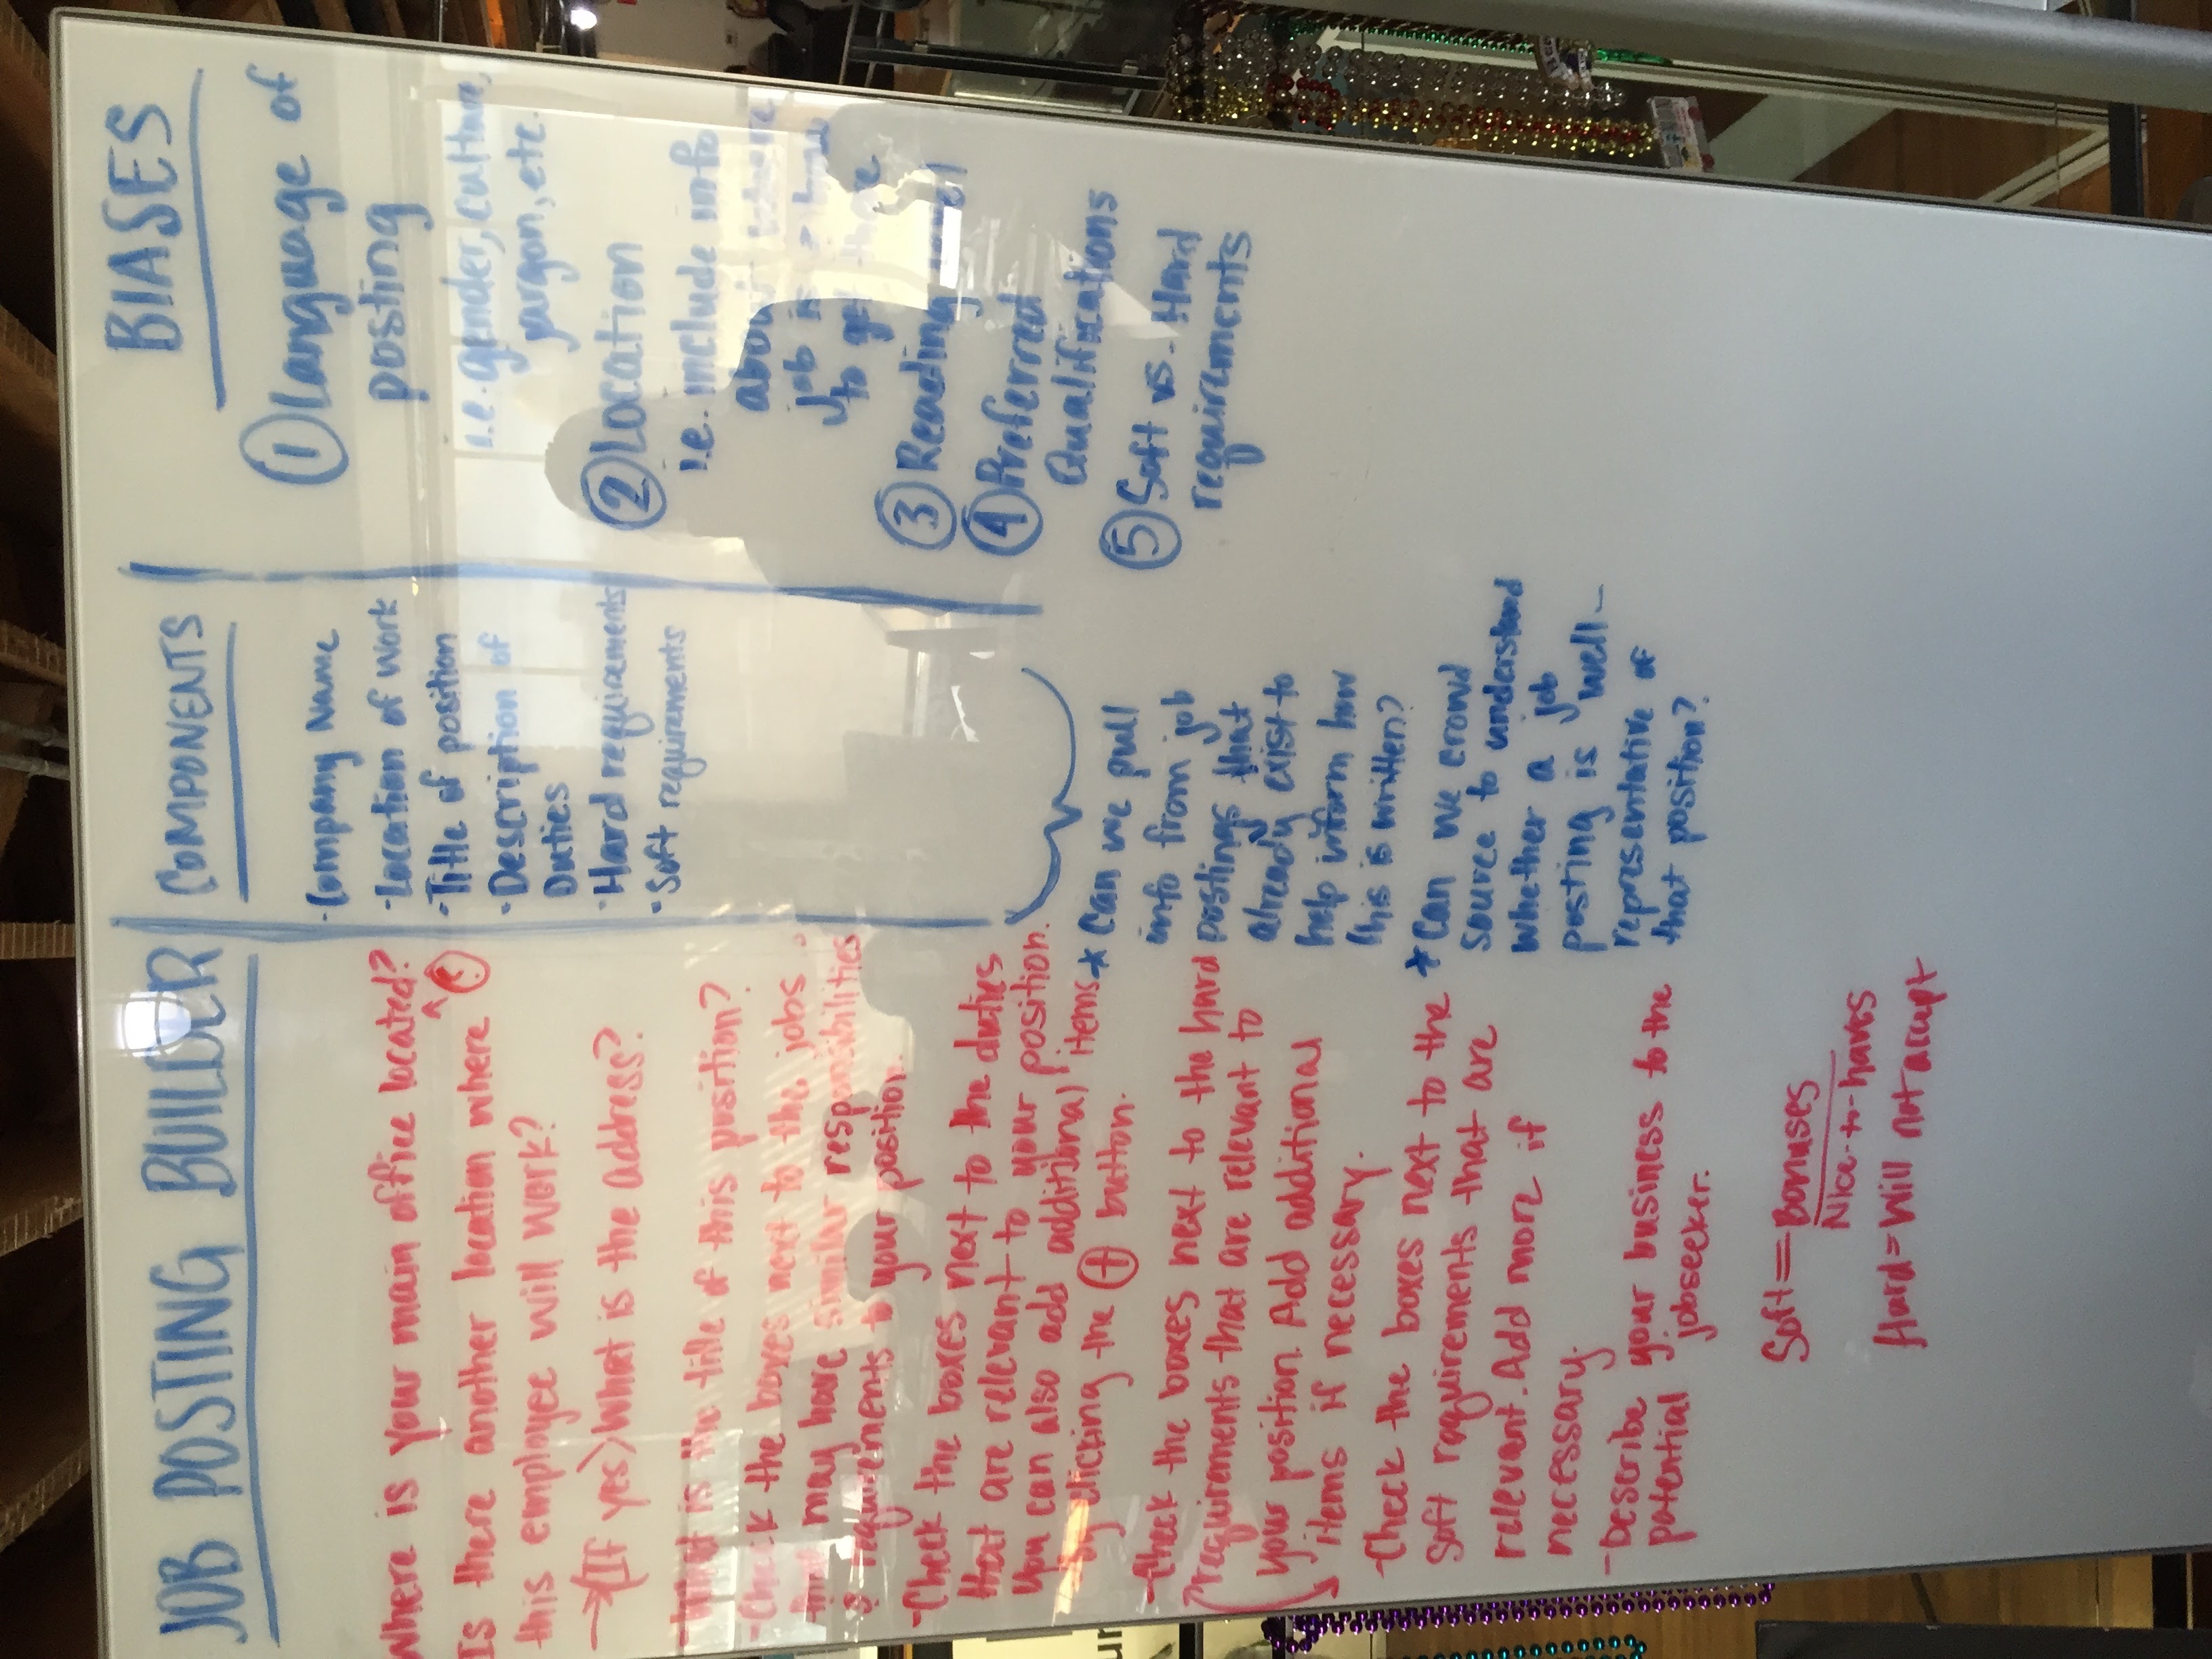 JOB POSTING BUILDER
Where is your main office located?
Is there another location where
this employee will work?
→(If yes) What is the address?
-What is the title of this position?
-Check the boxes next to the jobs
that may have similar responsibilities
& requirements to your position.
-Check the boxes next to the duties
that are relevant to your position.
You can also add additional items
by clicking the + button.
-Check the boxes next to the hard
requirements that are relevant to
your position. Add additional
items if necessary.
-Check the boxes next to the
soft requirements that are
relevant. Add more if
necessary.
-Describe your business to the
potential jobseeker.
Soft=Bonuses
Nice-to-haves
Hard=Will not accept
COMPONENTS
·Company Name
-Location of work
·Title of position
·Description of
Duties
·Hard requirements
·Soft requirements
* Can we pull
info from job
postings that
already exist to
help inform how
this is written?
* Can we crowd
source to understand
whether a job
posting is well-
representative of
that position?
BIASES
① Language of
posting
i.e. gender, culture,
jargon, etc.
② Location
i.e. include info
about where
job is & how
to get there
③ Reading level
④ Preferred
Qualifications
⑤ Soft vs. Hard
requirements